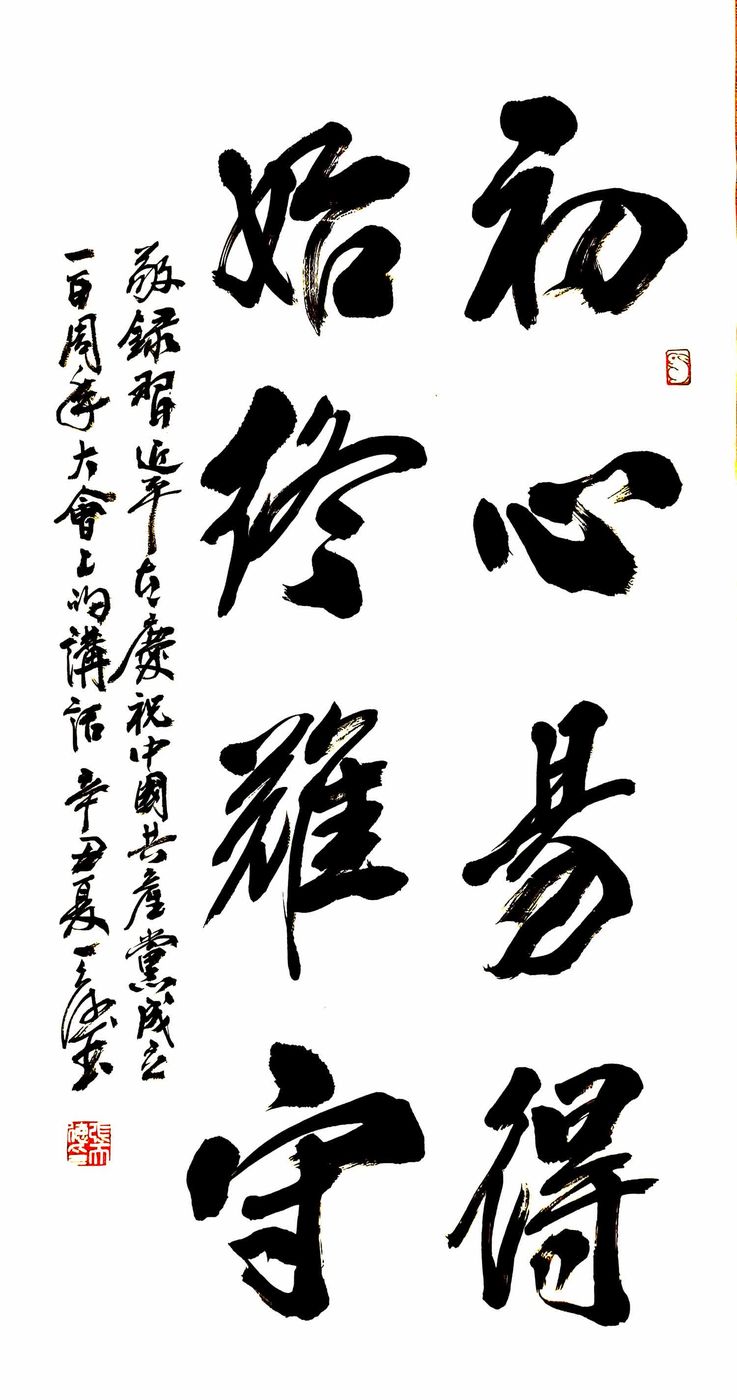 初心易得
始終難守
敬録習近平在慶祝中國共產黨成立
一百周年大會上的講話 辛丑夏